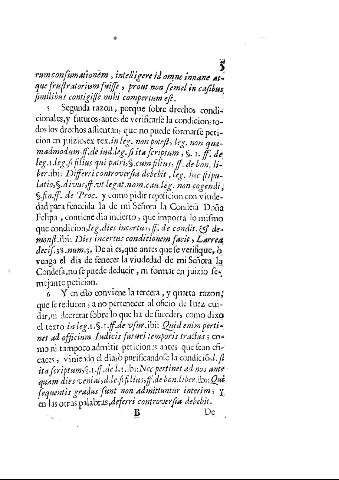 5
rum consumationem, intelligere id omne innane at-
que frustratorium fuisse, prout non semel in casibus
similibus contigisse mihi compertum est.
5 Segunda razon, porque sobre drechos condi-
cionales, y futuros, antes de verificarse la condicion; to-
dos los drechos assientan, que no puede formarse peti-
cion en juizio, ex tex. in leg. non potest, leg. non que-
madmodum. ff. de iud. l. si ita scriptum, §. 1. ff. de
leg. 1. leg. si filius qui patri, §. cum filius, ff. de bon. li-
ber. ibi: Differri controversia debebit, leg. hæc stipu-
latio, §. divus, ff. ut legat. nom. cau. leg. non cogendi,
ff. de Proc. y como pidir reposicion con viude-
dad para fenecida la de mi Señora la Condesa Doña
Felipa, contiene dia incierto, que importa lo mismo
que condicion, leg. dies incertus, ff. de condit. & de-
monst. ibi: Dies incertus conditionem facit, Larrea
decis. 38. num. 3. De ai es, que antes que se verifique, ò
venga el dia de fenecer la viudedad de mi Señora la
Condesa, no se puede deducir, ni formar en juizio se-
mejante peticion.
6 Y en esto conviene la tercera, y quarta razon,
que se reducen, a no pertenecer al oficio de Iuez cui-
dar, ni decretar sobre lo que ha de suceder, como dixo
el texto in leg. 1. §. 1. ff. de usur. ibi: Quid enim perti-
net ad officium Iudicis futuri temporis tractus; co-
mo ni tampoco admitir peticiones antes que sean efi-
caces, y viniendo el dia, ò purificandose la condicio d. si
ita scriptum, §. 1. ff. de l. 1. ibi: Nec pertinet ad nos ante
quam dies veniat, d. le. si filius, ff. de bon. liber. ibi: Qui
sequentis gradus sunt non admittuntur interim; y
en las otras palabras, deferri controversia debebit.
B De